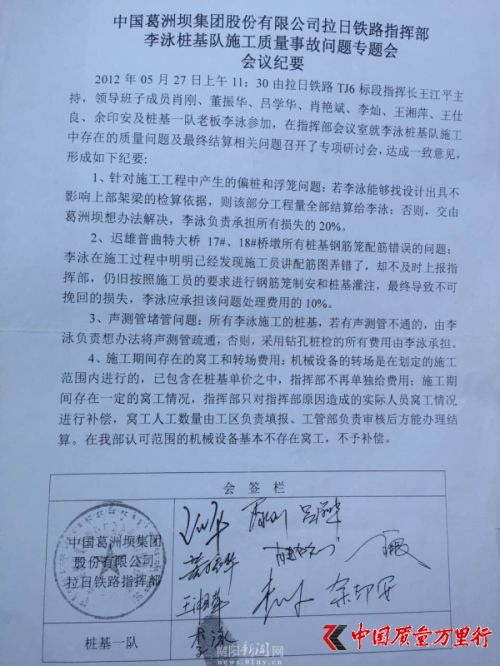 中国葛洲坝集团股份有限公司拉日铁路指挥部
李泳桩基队施工质量事故问题专题会
会议纪要
2012 年 05 月 27 日上午 11：30 由拉日铁路 TJ6 标段指挥长王江平主
持，领导班子成员肖刚、董振华、吕学华、肖艳斌、李灿、王湘萍、王仕
良、余印安及桩基一队老板李泳参加，在指挥部会议室就李泳桩基队施工
中存在的质量问题及最终结算相关问题召开了专项研讨会，达成一致意见，
形成如下纪要：
1、针对施工工程中产生的偏桩和浮笼问题：若李泳能够找设计出具不
影响上部架梁的检算依据，则该部分工程量全部结算给李泳；否则，交由
葛洲坝想办法解决，李泳负责承担所有损失的 20%。
2、迟雄普曲特大桥 17#、18#桥墩所有桩基钢筋笼配筋错误的问题：
李泳在施工过程中明明已经发现施工员讲配筋图弄错了，却不及时上报指
挥部，仍旧按照施工员的要求进行钢筋笼制安和桩基灌注，最终导致不可
挽回的损失，李泳应承担该问题处理费用的 10%。
3、声测管堵管问题：所有李泳施工的桩基，若有声测管不通的，由李
泳负责想办法将声测管疏通，否则，采用钻孔桩检的所有费用由李泳承担。
4、施工期间存在的窝工和转场费用：机械设备的转场是在划定的施工
范围内进行的，已包含在桩基单价之中，指挥部不再单独给费用；施工期
间存在一定的窝工情况，指挥部只对指挥部原因造成的实际人员窝工情况
进行补偿，窝工人工数量由工区负责填报、工管部负责审核后方能办理结
算。在我部认可范围的机械设备基本不存在窝工，不予补偿。
会签栏
中国葛洲坝集团
股份有限公司
拉日铁路指挥部
吕学华
董振华
王湘萍
余印安
桩基一队
李泳
朝阳新闻网
www.01ny.cn
中国质量万里行